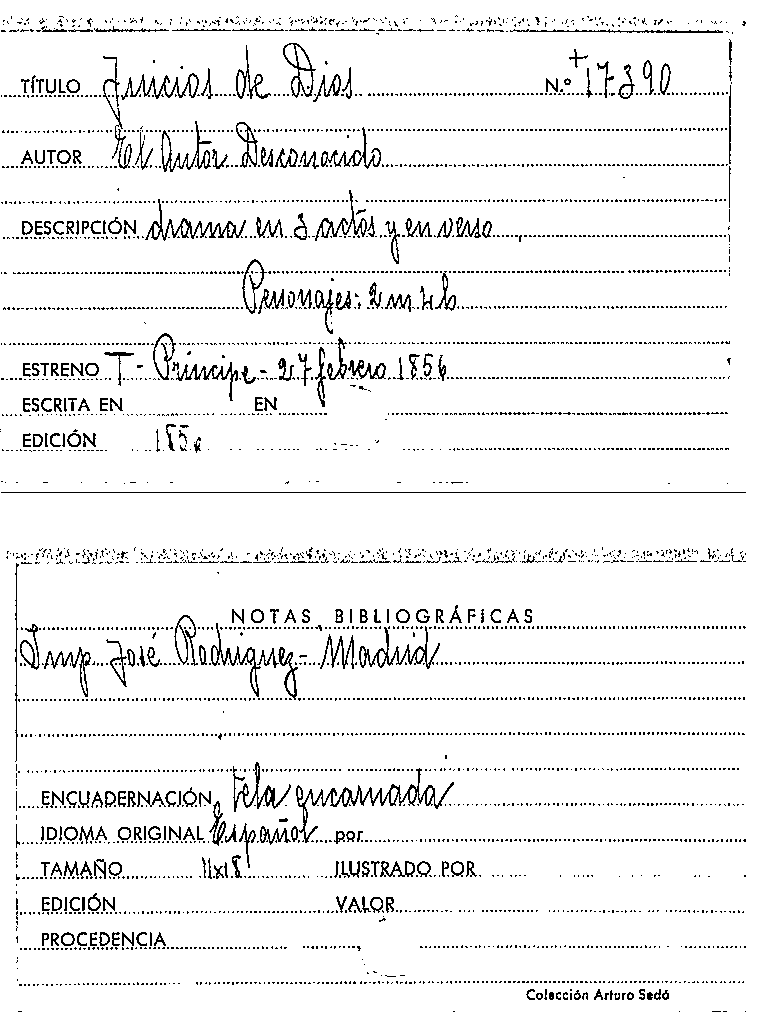 TÍTULO Juicios de Dios N.º +17390
AUTOR El Autor Desconocido
DESCRIPCIÓN drama en 3 actos y en verso
Personajes: 2m 7h
ESTRENO T - Principe - 27 febrero 1856
ESCRITA EN EN
EDICIÓN 1856
NOTAS BIBLIOGRÁFICAS
Imp José Rodriguez - Madrid
ENCUADERNACIÓN Tela encarnada
IDIOMA ORIGINAL Español por
TAMAÑO 11x18 ILUSTRADO POR
EDICIÓN VALOR
PROCEDENCIA
Colección Arturo Sedó